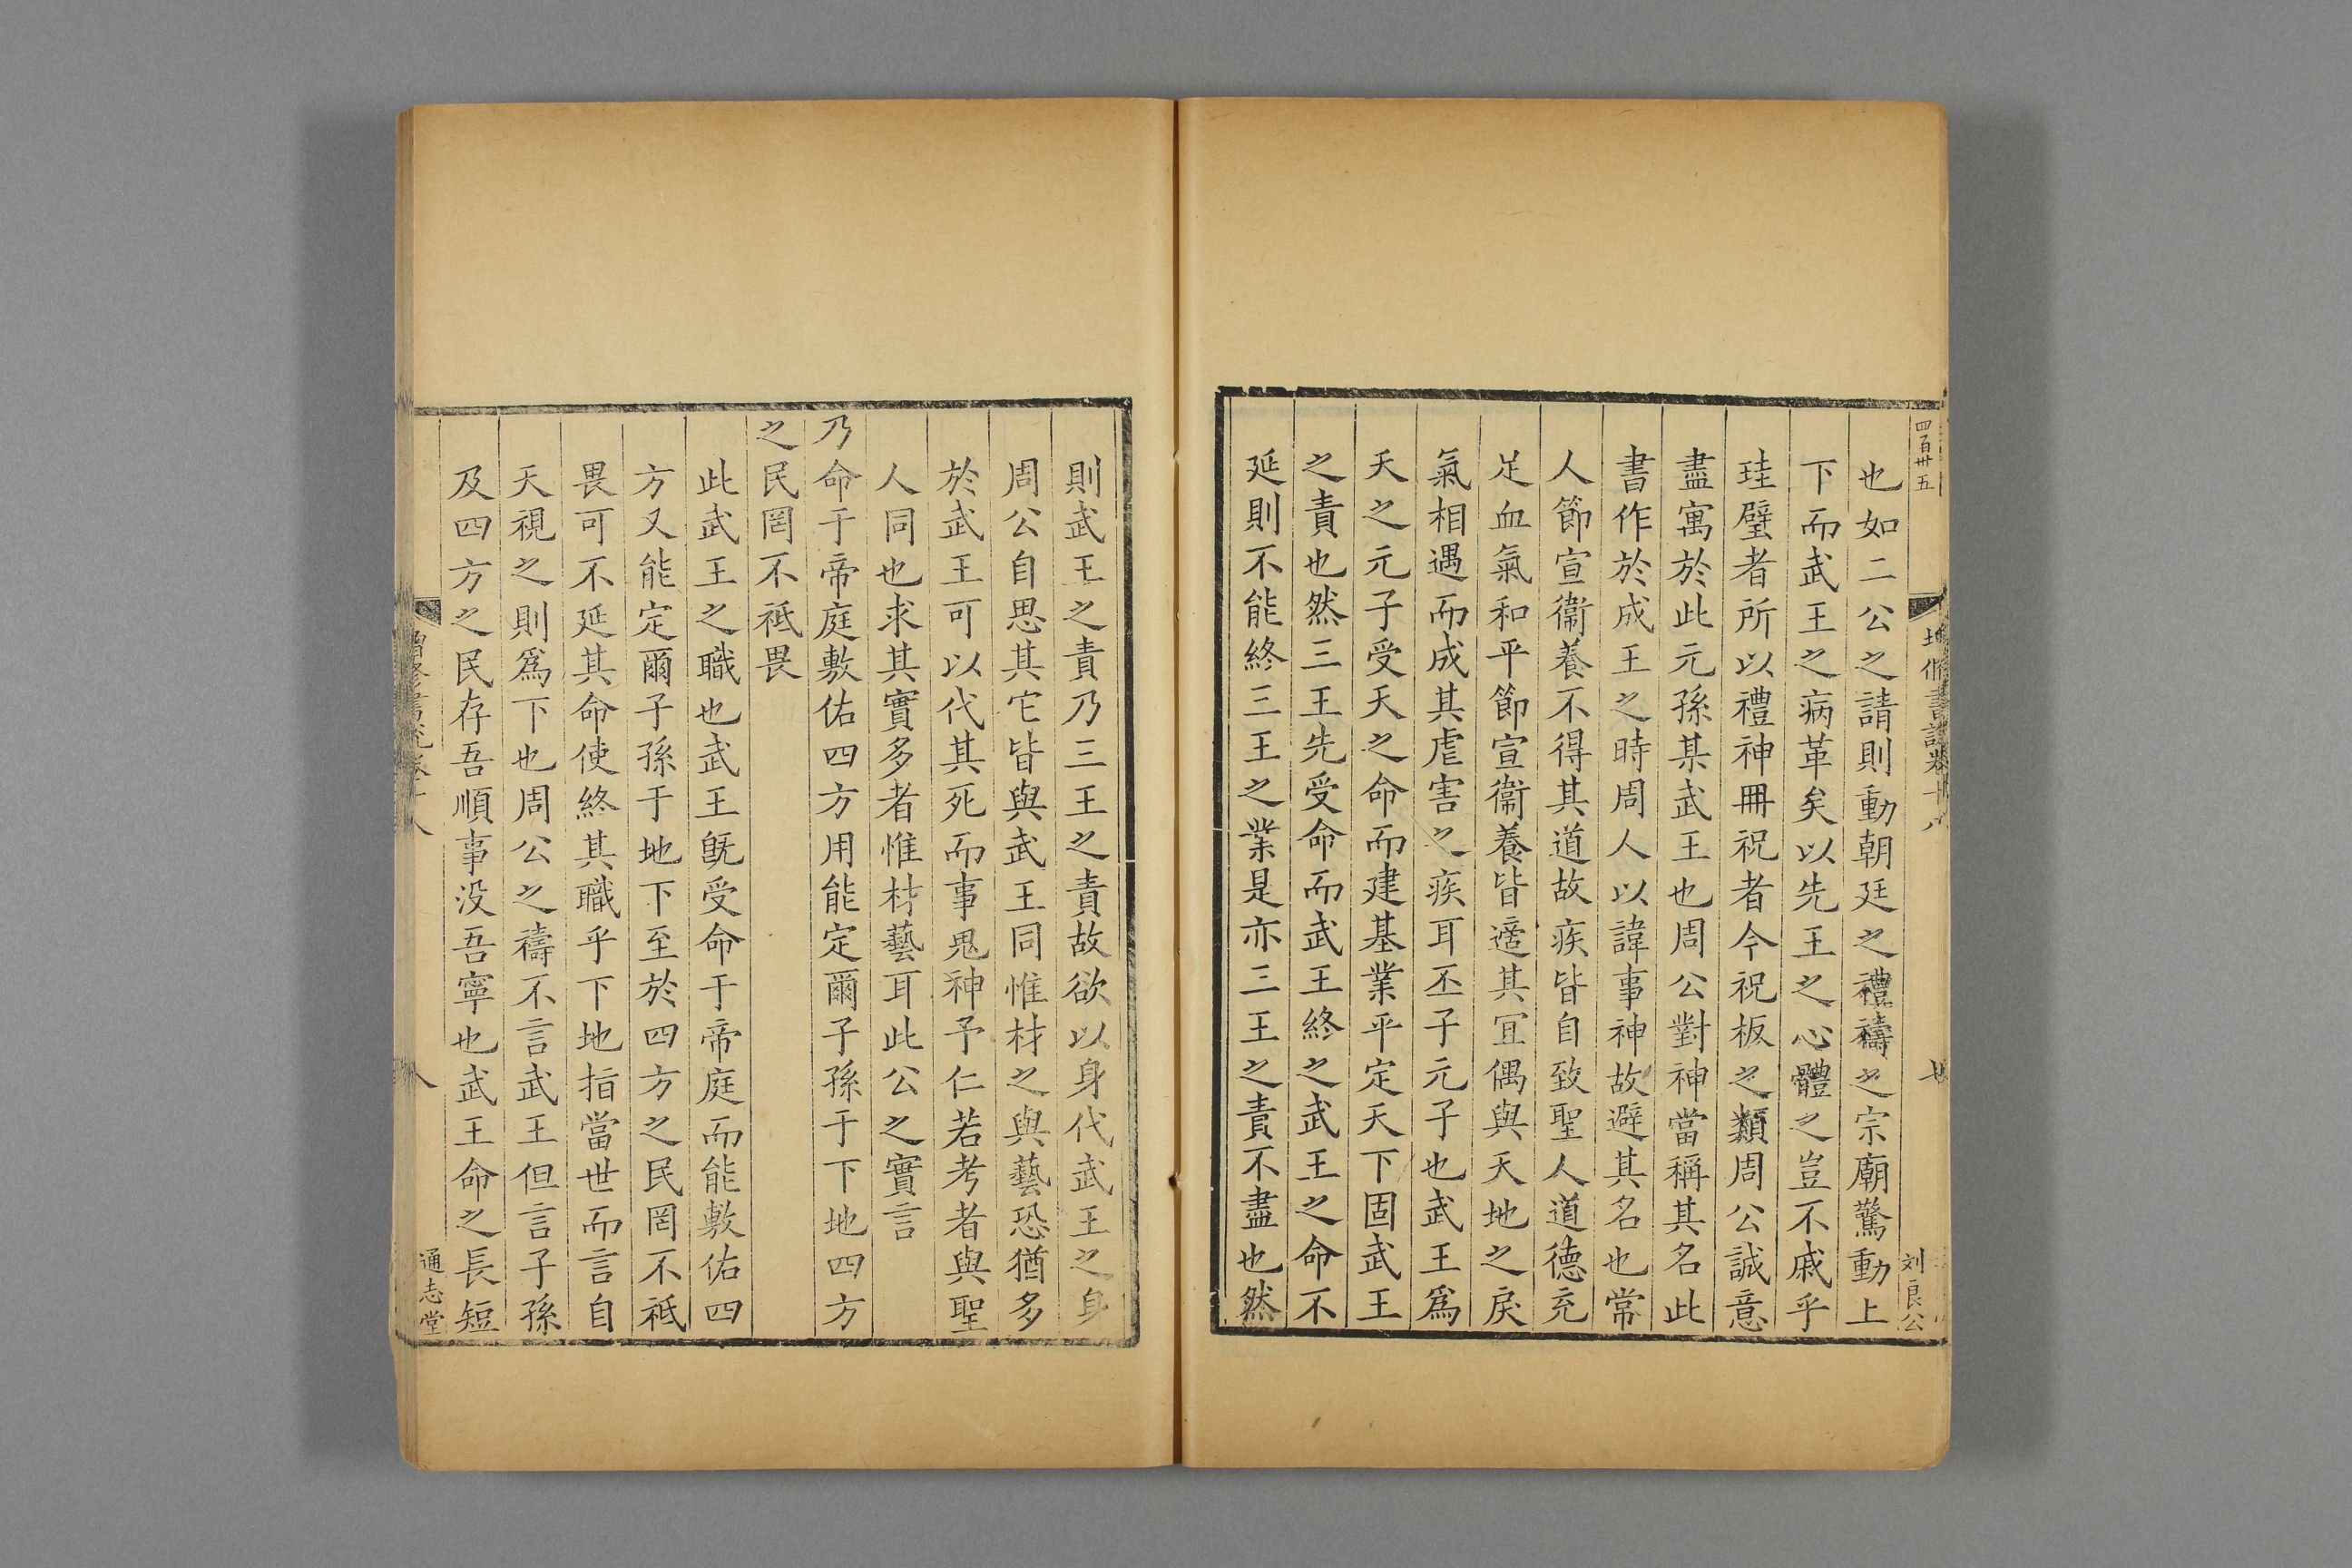 四百卅五
增脩書說卷十八
刘良公
也如二公之請則動朝廷之禮禱之宗廟驚動上
下而武王之病革矣以先王之心體之豈不戚乎
珪璧者所以禮神冊祝者今祝板之類周公誠意
盡寓於此元孫某武王也周公對神當稱其名此
書作於成王之時周人以諱事神故避其名也常
人節宣衞養不得其道故疾皆自致聖人道德充
足血氣和平節宣衞養皆適其宜偶與天地之戾
氣相遇而成其虐害之疾耳丕子元子也武王為
天之元子受天之命而建基業平定天下固武王
之責也然三王先受命而武王終之武王之命不
延則不能終三王之業是亦三王之責不盡也然
則武王之責乃三王之責故欲以身代武王之身
周公自思其它皆與武王同惟材之與藝恐猶多
於武王可以代其死而事鬼神予仁若考者與聖
人同也求其實多者惟材藝耳此公之實言
乃命于帝庭敷佑四方用能定爾子孫于下地四方
之民罔不祗畏
此武王之職也武王旣受命于帝庭而能敷佑四
方又能定爾子孫于地下至於四方之民罔不祗
畏可不延其命使終其職乎下地指當世而言自
天視之則爲下也周公之禱不言武王但言子孫
及四方之民存吾順事没吾寧也武王命之長短
通志堂